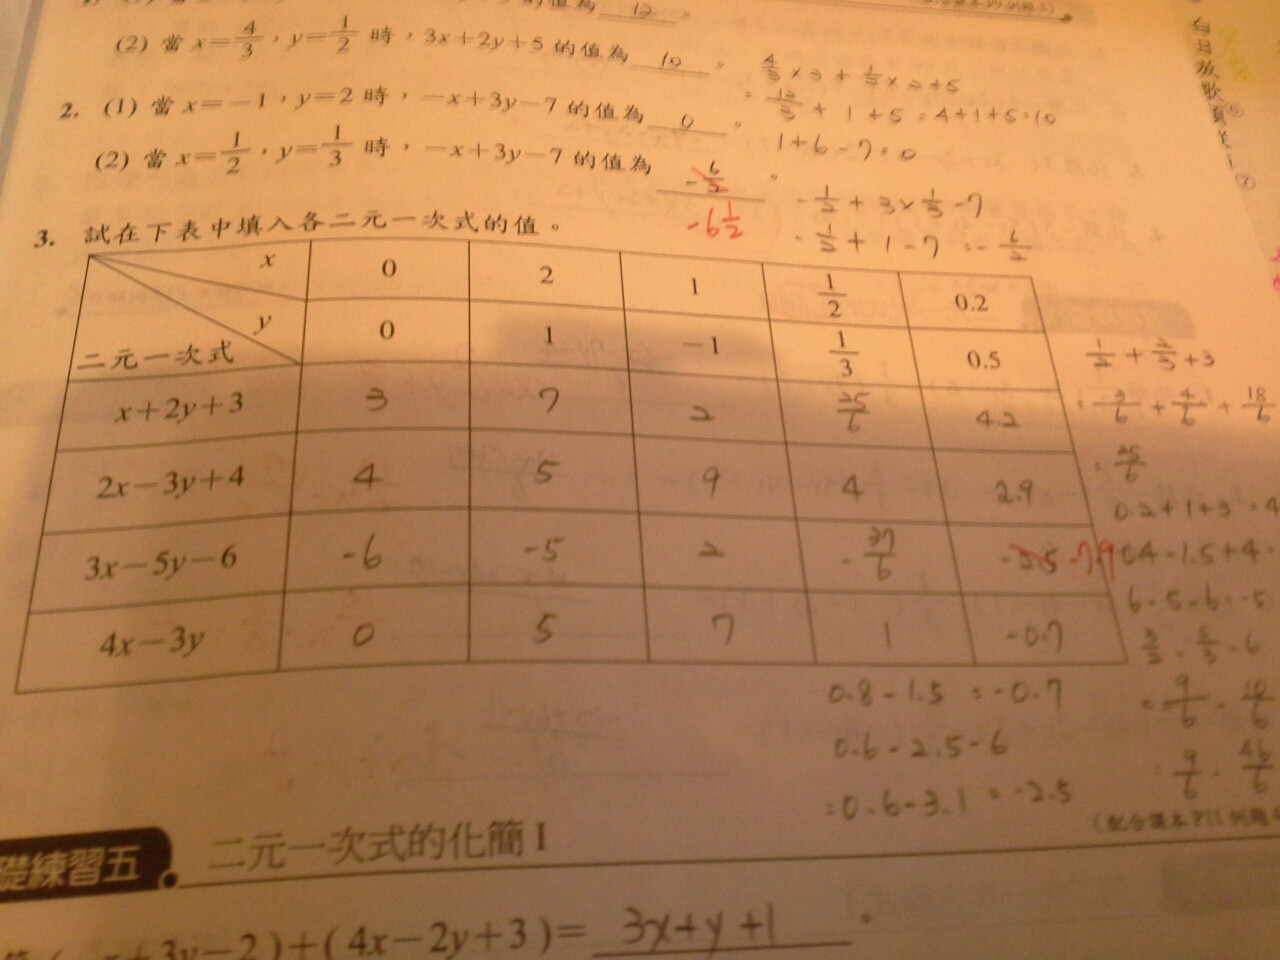 的值為 12 。
(2) 當 x=4/3，y=1/2 時，3x+2y+5 的值為 10 。
4/3 ×3 + 1/2 ×2+5
= 12/3 + 1+5 = 4+1+5=10
2. (1) 當 x=−1，y=2 時，−x+3y−7 的值為 0 。
1+6-7=0
(2) 當 x=1/2，y=1/3 時，−x+3y−7 的值為 -6/2 。
-6 1/2
-1/2 + 3×1/3 -7
-1/2 + 1-7 =-6/2
3. 試在下表中填入各二元一次式的值。
x 0 2 1 1/2 0.2
y 0 1 −1 1/3 0.5
二元一次式
x+2y+3 3 7 2 25/6 4.2
2x−3y+4 4 5 9 4 2.9
3x−5y−6 -6 -5 2 -37/6 -2.5 -7.9
4x−3y 0 5 7 1 -0.7
1/2 + 2/3 +3
= 3/6 + 4/6 + 18/6
= 25/6
0.2+1+3 =4
0.4-1.5+4
6-5-6=-5
3/2 - 5/3 -6
= 9/6 - 10/6
= 9/6 - 46/6
0.8-1.5 =-0.7
0.6-2.5-6
=0.6-3.1 =-2.5
(配合課本P11例題
礎練習五 二元一次式的化簡 I
x+3y−2)+(4x−2y+3)= 3x+y+1 。
白日放歌須